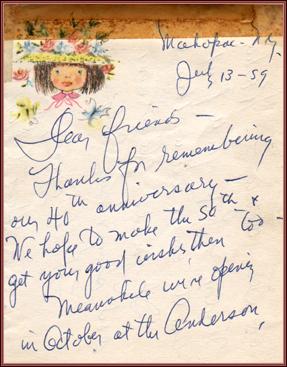 Mahopac - N.Y.
July 13 - 59
Dear friends -
Thanks for remembering
our 40th anniversary -
We hope to make the 50th &
get your good wishes then too -
Meanwhile we're opening
in October at the Anderson,